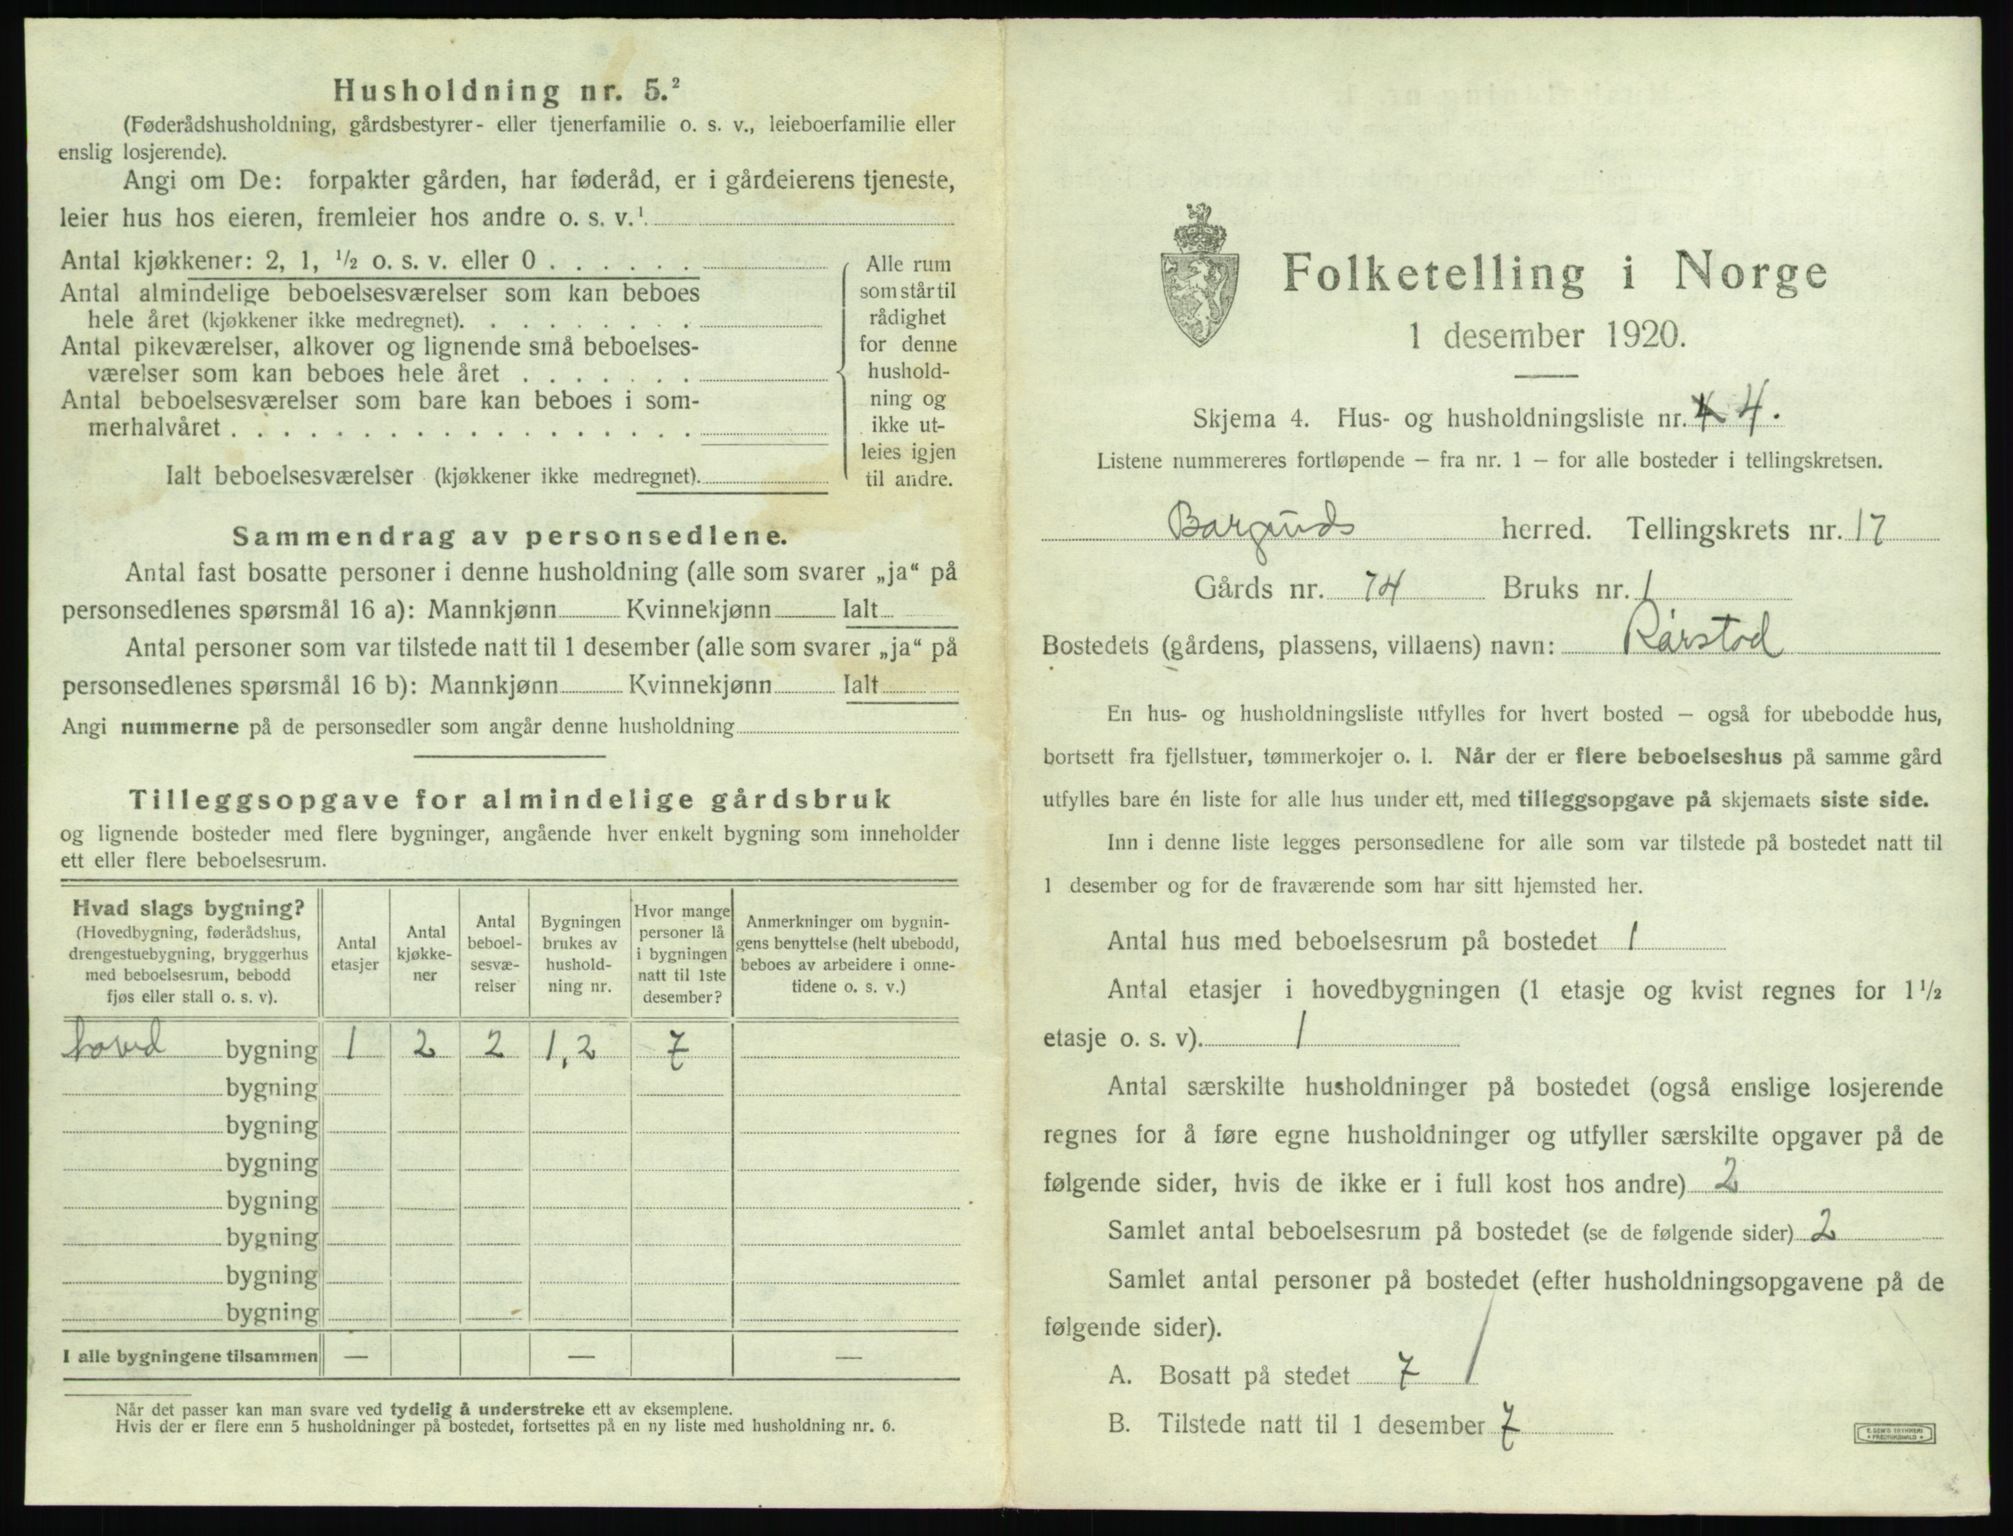 Husholdning nr. 5.²
(Føderådshusholdning, gårdsbestyrer- eller tjenerfamilie o. s. v., leieboerfamilie eller
enslig losjerende).
Angi om De: forpakter gården, har føderåd, er i gårdeierens tjeneste,
leier hus hos eieren, fremleier hos andre o. s. v.¹
Antal kjøkkener: 2, 1, ¹/₂ o. s. v. eller 0 . . . . . .
Antal almindelige beboelsesværelser som kan beboes
hele året (kjøkkener ikke medregnet). . . . . . . . .
Antal pikeværelser, alkover og lignende små beboelses-
værelser som kan beboes hele året . . . . . . .
Antal beboelsesværelser som bare kan beboes i som-
merhalvåret . . . . . . . . . . . . . . . . . .
Ialt beboelsesværelser (kjøkkener ikke medregnet).
Alle rum
som står til
rådighet
for denne
hushold-
ning og
ikke ut-
leies igjen
til andre.
Sammendrag av personsedlene.
Antal fast bosatte personer i denne husholdning (alle som svarer „ja“ på
personsedlenes spørsmål 16 a): Mannkjønn Kvinnekjønn Ialt
Antal personer som var tilstede natt til 1 desember (alle som svarer „ja“ på
personsedlenes spørsmål 16 b): Mannkjønn Kvinnekjønn Ialt
Angi nummerne på de personsedler som angår denne husholdning
Tilleggsopgave for almindelige gårdsbruk
og lignende bosteder med flere bygninger, angående hver enkelt bygning som inneholder
ett eller flere beboelsesrum.
Hvad slags bygning?
(Hovedbygning, føderådshus,
drengestuebygning, bryggerhus
med beboelsesrum, bebodd
fjøs eller stall o. s. v).
Antal
etasjer
Antal
kjøkke-
ner
Antal
beboel-
sesvæ-
relser
Bygningen
brukes av
hushold-
ning nr.
Hvor mange
personer lå
i bygningen
natt til 1ste
desember?
Anmerkninger om bygnin-
gens benyttelse (helt ubebodd,
beboes av arbeidere i onne-
tidene o. s. v.)
hoved bygning 1 2 2 1,2 7
bygning
bygning
bygning
bygning
bygning
bygning
bygning
I alle bygningene tilsammen — — —
Når det passer kan man svare ved tydelig å understreke ett av eksemplene.
Hvis der er flere enn 5 husholdninger på bostedet, fortsettes på en ny liste med husholdning nr. 6.
Folketelling i Norge
1 desember 1920.
Skjema 4. Hus- og husholdningsliste nr. 4 4.
Listene nummereres fortløpende — fra nr. 1 — for alle bosteder i tellingskretsen.
Borgunds herred. Tellingskrets nr. 17
Gårds nr. 74 Bruks nr. 1
Bostedets (gårdens, plassens, villaens) navn: Rørstad
En hus- og husholdningsliste utfylles for hvert bosted — også for ubebodde hus,
bortsett fra fjellstuer, tømmerkojer o. l. Når der er flere beboelseshus på samme gård
utfylles bare én liste for alle hus under ett, med tilleggsopgave på skjemaets siste side.
Inn i denne liste legges personsedlene for alle som var tilstede på bostedet natt til
1 desember og for de fraværende som har sitt hjemsted her.
Antal hus med beboelsesrum på bostedet 1
Antal etasjer i hovedbygningen (1 etasje og kvist regnes for 1¹/₂
etasje o. s. v). 1
Antal særskilte husholdninger på bostedet (også enslige losjerende
regnes for å føre egne husholdninger og utfyller særskilte opgaver på de
følgende sider, hvis de ikke er i full kost hos andre) 2
Samlet antal beboelsesrum på bostedet (se de følgende sider) 2
Samlet antal personer på bostedet (efter husholdningsopgavene på de
følgende sider).
A. Bosatt på stedet 7
B. Tilstede natt til 1 desember 7